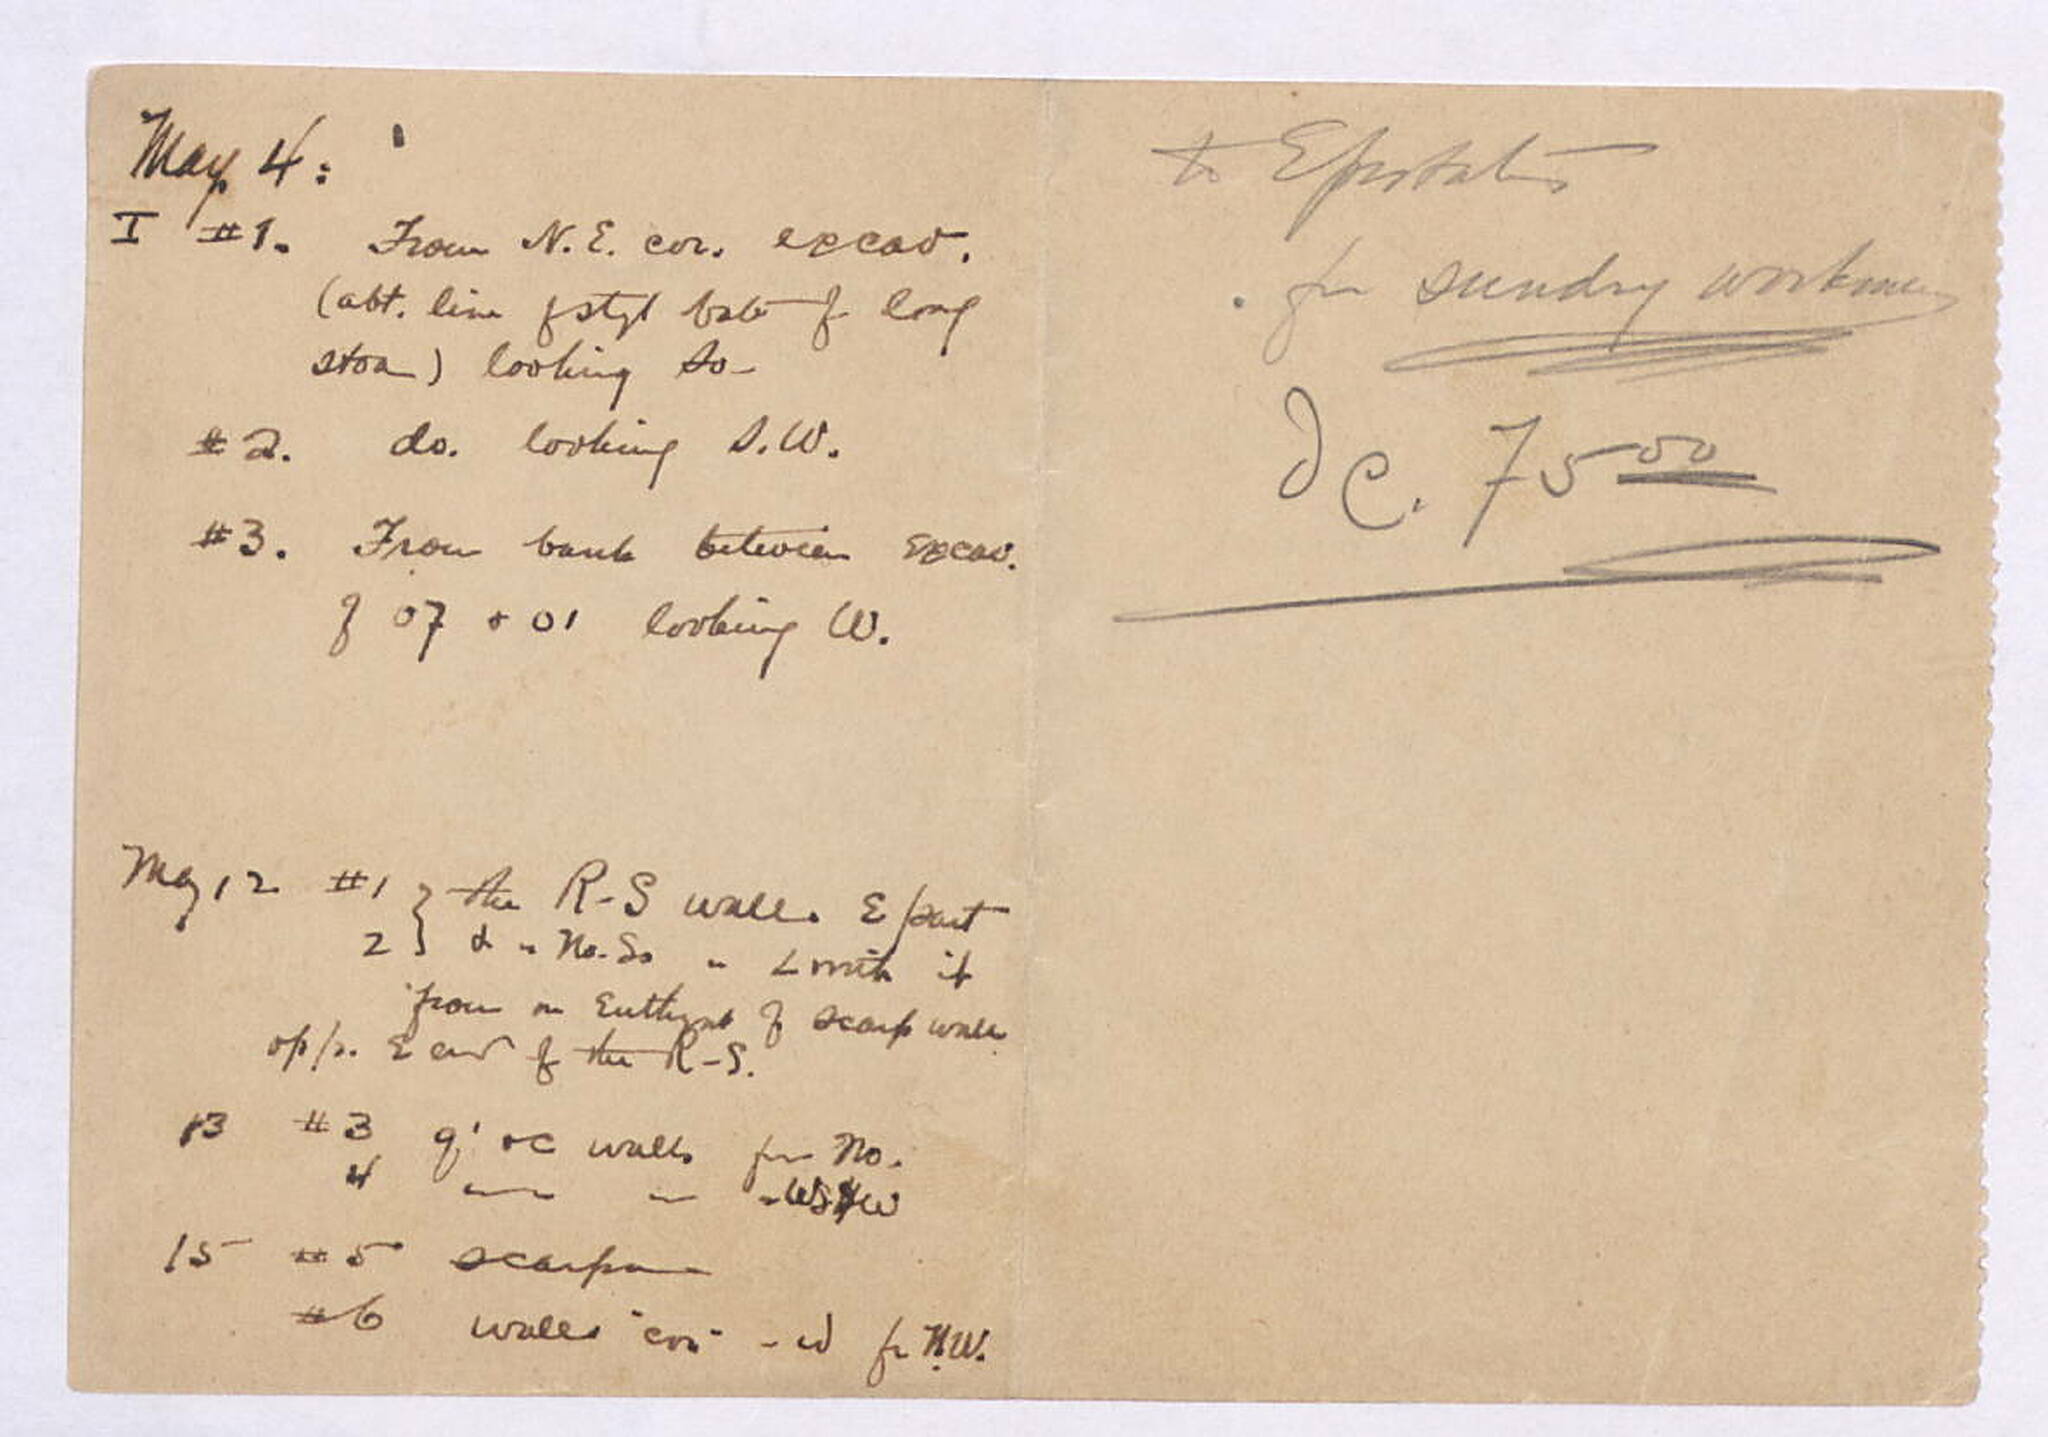 May 4:
I #1. From N.E. cor. excav.
(abt. line of styl. of long
stoa) looking So-
#2. do. looking S.W.
#3. From bank between excav.
of 07 + 01 looking W.
May 12 #1 } the R-S wall. E part
2 } No. So " it
from on of scarp wall
opp. E end of the R-S.
13 #3 walls fr No.
4
15 #5
#6 walls fr N.W.
to Epistates
for sundry workmen
75 00